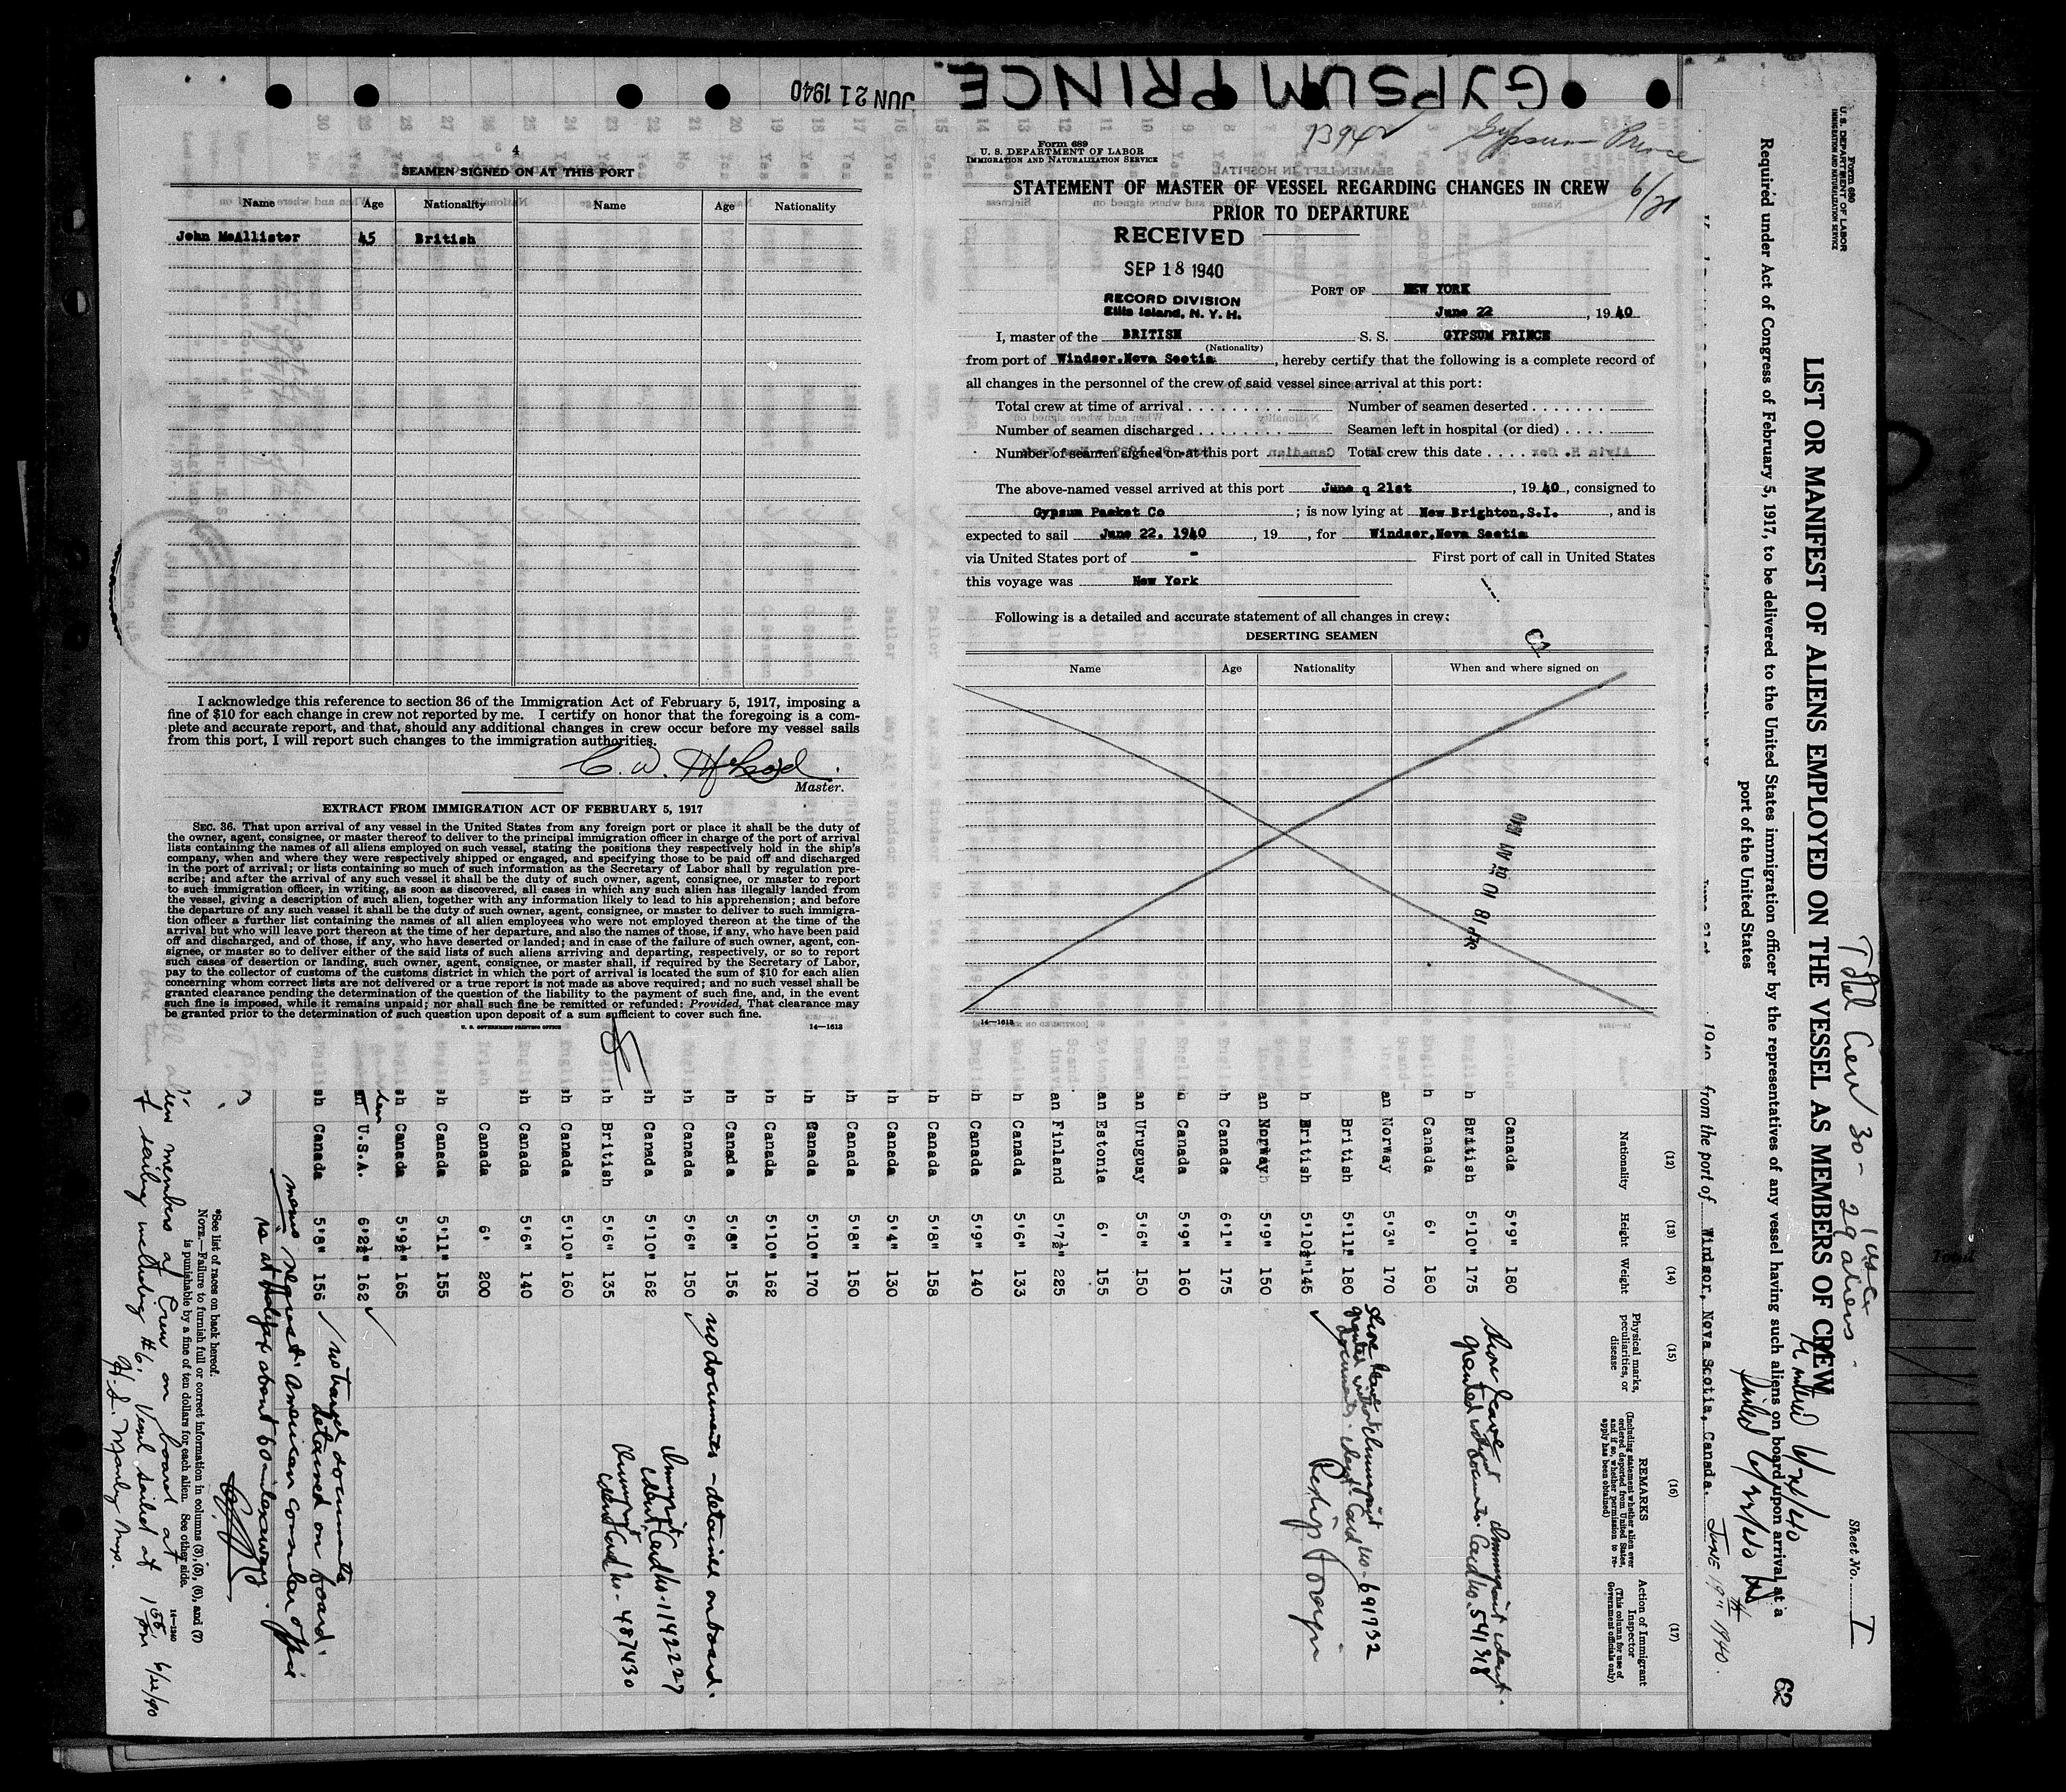 GYPSUM PRINCE.
JUN 21 1940
4
SEAMEN SIGNED ON AT THIS PORT
Name Age Nationality Name Age Nationality
John McAllister 45 British
I acknowledge this reference to section 36 of the Immigration Act of February 5, 1917, imposing a
fine of $10 for each change in crew not reported by me. I certify on honor that the foregoing is a com-
plete and accurate report, and that, should any additional changes in crew occur before my vessel sails
from this port, I will report such changes to the immigration authorities.
C. W. McLeod
Master.
EXTRACT FROM IMMIGRATION ACT OF FEBRUARY 5, 1917
SEC. 36. That upon arrival of any vessel in the United States from any foreign port or place it shall be the duty of
the owner, agent, consignee, or master thereof to deliver to the principal immigration officer in charge of the port of arrival
lists containing the names of all aliens employed on such vessel, stating the positions they respectively hold in the ship's
company, when and where they were respectively shipped or engaged, and specifying those to be paid off and discharged
in the port of arrival; or lists containing so much of such information as the Secretary of Labor shall by regulation pre-
scribe; and after the arrival of any such vessel it shall be the duty of such owner, agent, consignee, or master to report
to such immigration officer, in writing, as soon as discovered, all cases in which any such alien has illegally landed from
the vessel, giving a description of such alien, together with any information likely to lead to his apprehension; and before
the departure of any such vessel it shall be the duty of such owner, agent, consignee, or master to deliver to such immigra-
tion officer a further list containing the names of all alien employees who were not employed thereon at the time of the
arrival but who will leave port thereon at the time of her departure, and also the names of those, if any, who have been paid
off and discharged, and of those, if any, who have deserted or landed; and in case of the failure of such owner, agent, con-
signee, or master so to deliver either of the said lists of such aliens arriving and departing, respectively, or so to report
such cases of desertion or landing, such owner, agent, consignee, or master shall, if required by the Secretary of Labor,
pay to the collector of customs of the customs district in which the port of arrival is located the sum of $10 for each alien
concerning whom correct lists are not delivered or a true report is not made as above required; and no such vessel shall be
granted clearance pending the determination of the question of the liability to the payment of such fine, and, in the event
such fine is imposed, while it remains unpaid; nor shall such fine be remitted or refunded: Provided, That clearance may
be granted prior to the determination of such question upon deposit of a sum sufficient to cover such fine.
U. S. GOVERNMENT PRINTING OFFICE 14—1613
Form 689
U. S. DEPARTMENT OF LABOR
IMMIGRATION AND NATURALIZATION SERVICE
Gypsum Prince
6/21
STATEMENT OF MASTER OF VESSEL REGARDING CHANGES IN CREW
PRIOR TO DEPARTURE
RECEIVED
SEP 18 1940
RECORD DIVISION
Ellis Island, N. Y. H.
PORT OF NEW YORK
June 22, 1940
I, master of the BRITISH S. S. GYPSUM PRINCE
(Nationality)
from port of Windsor,Nova Scotia, hereby certify that the following is a complete record of
all changes in the personnel of the crew of said vessel since arrival at this port:
Total crew at time of arrival Number of seamen deserted
Number of seamen discharged Seamen left in hospital (or died)
Number of seamen signed on at this port Total crew this date
The above-named vessel arrived at this port June q 21st, 1940, consigned to
Gypsum Packet Co ; is now lying at New Brighton,S.I., and is
expected to sail June 22. 1940, 19 , for Windsor,Nova Scotia
via United States port of - First port of call in United States
this voyage was New York
Following is a detailed and accurate statement of all changes in crew:
DESERTING SEAMEN
Name Age Nationality When and where signed on
14—1613
Form 680
U. S. DEPARTMENT OF LABOR
IMMIGRATION AND NATURALIZATION SERVICE
Total Crew 30 - 1 usc
29 aliens
Sheet No. I
LIST OR MANIFEST OF ALIENS EMPLOYED ON THE VESSEL AS MEMBERS OF CREW
Required under Act of Congress of February 5, 1917, to be delivered to the United States immigration officer by the representatives of any vessel having such aliens on board upon arrival at a
port of the United States
Sailed 6/22/40
62
1940 from the port of Windsor, Nova Scotia, Canada. June 19th 1940.
(12) (13) (14) (15) (16) (17)
Nationality Height Weight Physical marks, peculiarities, or disease REMARKS (Including statement whether alien ever ordered deported from United States, and if so, whether permission to re-apply has been obtained) Action of Immigrant Inspector (This column for use of Government officials only)
Canada 5'9" 180 Shore leave granted without documents. Card No. 541318
British 5'10" 175
Canada 6' 180
Norway 5'3" 170
British 5'11" 180 no-691732
British 5'10½" 145 Reship Foreign
Norway 5'9" 150
Canada 6'1" 175
Canada 5'9" 160
Uruguay 5'6" 150
Estonia 6' 155
Finland 5'7½" 225
Canada 5'6" 133
Canada 5'9" 140
Canada 5'8" 158
Canada 5'4" 130
Canada 5'8" 150
Canada 5'10" 170
Canada 5'10" 162
Canada 5'8" 156
Canada 5'6" 150 no documents - detained on board.
Canada 5'10" 162 Card No-1142227
British 5'6" 135 Card No- 487430
Canada 5'10" 160
Canada 5'6" 140
Canada 6' 200
Canada 5'11" 155
Canada 5'9½" 165
U.S.A. 6'2½" 162
Canada 5'8" 156 no travel documents detained on board.
memo request American consular office
is at Halifax about 60 miles away.
*See list of races on back hereof.
NOTE.—Failure to furnish full or correct information in columns (3), (5), (6), and (7)
is punishable by a fine of ten dollars for each alien. See other side.
14—1240
all alien members of Crew on board at
the time of sailing including #6, Vessel sailed at 1 55 pm 6/22/40